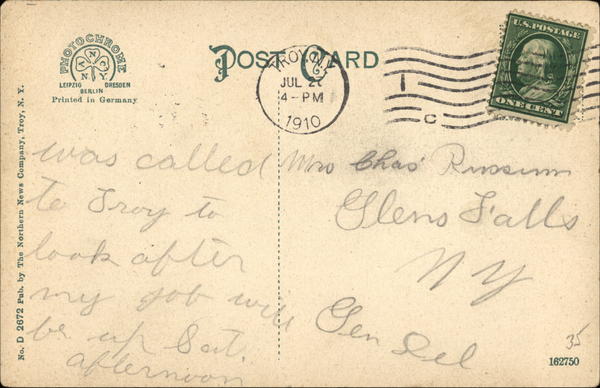 PHOTOCHROME
A
N N
C Y
LEIPZIG DRESDEN
BERLIN
Printed in Germany
POST CARD
TROY
JUL
4-PM
1910
1
C
U.S. POSTAGE
ONE CENT
No. D 2672 Pub. by The Northern News Company, Troy, N. Y.
was called
to Troy to
look after
my job will
be up Sat.
afternoon
Mrs Chas Russum
Glens Falls
NY
Gen Del
35
162750